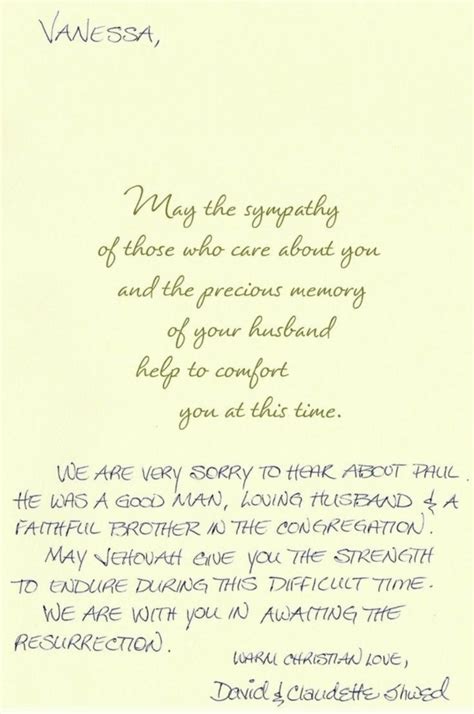 VANESSA,
May the sympathy
of those who care about you
and the precious memory
of your husband
help to comfort
you at this time.
WE ARE VERY SORRY TO HEAR ABOUT PAUL.
HE WAS A GOOD MAN, LOVING HUSBAND & A
FAITHFUL BROTHER IN THE CONGREGATION.
MAY JEHOVAH GIVE YOU THE STRENGTH
TO ENDURE DURING THIS DIFFICULT TIME.
WE ARE WITH YOU IN AWAITING THE
RESURRECTION.
WARM CHRISTIAN LOVE,
David & Claudette Shwed